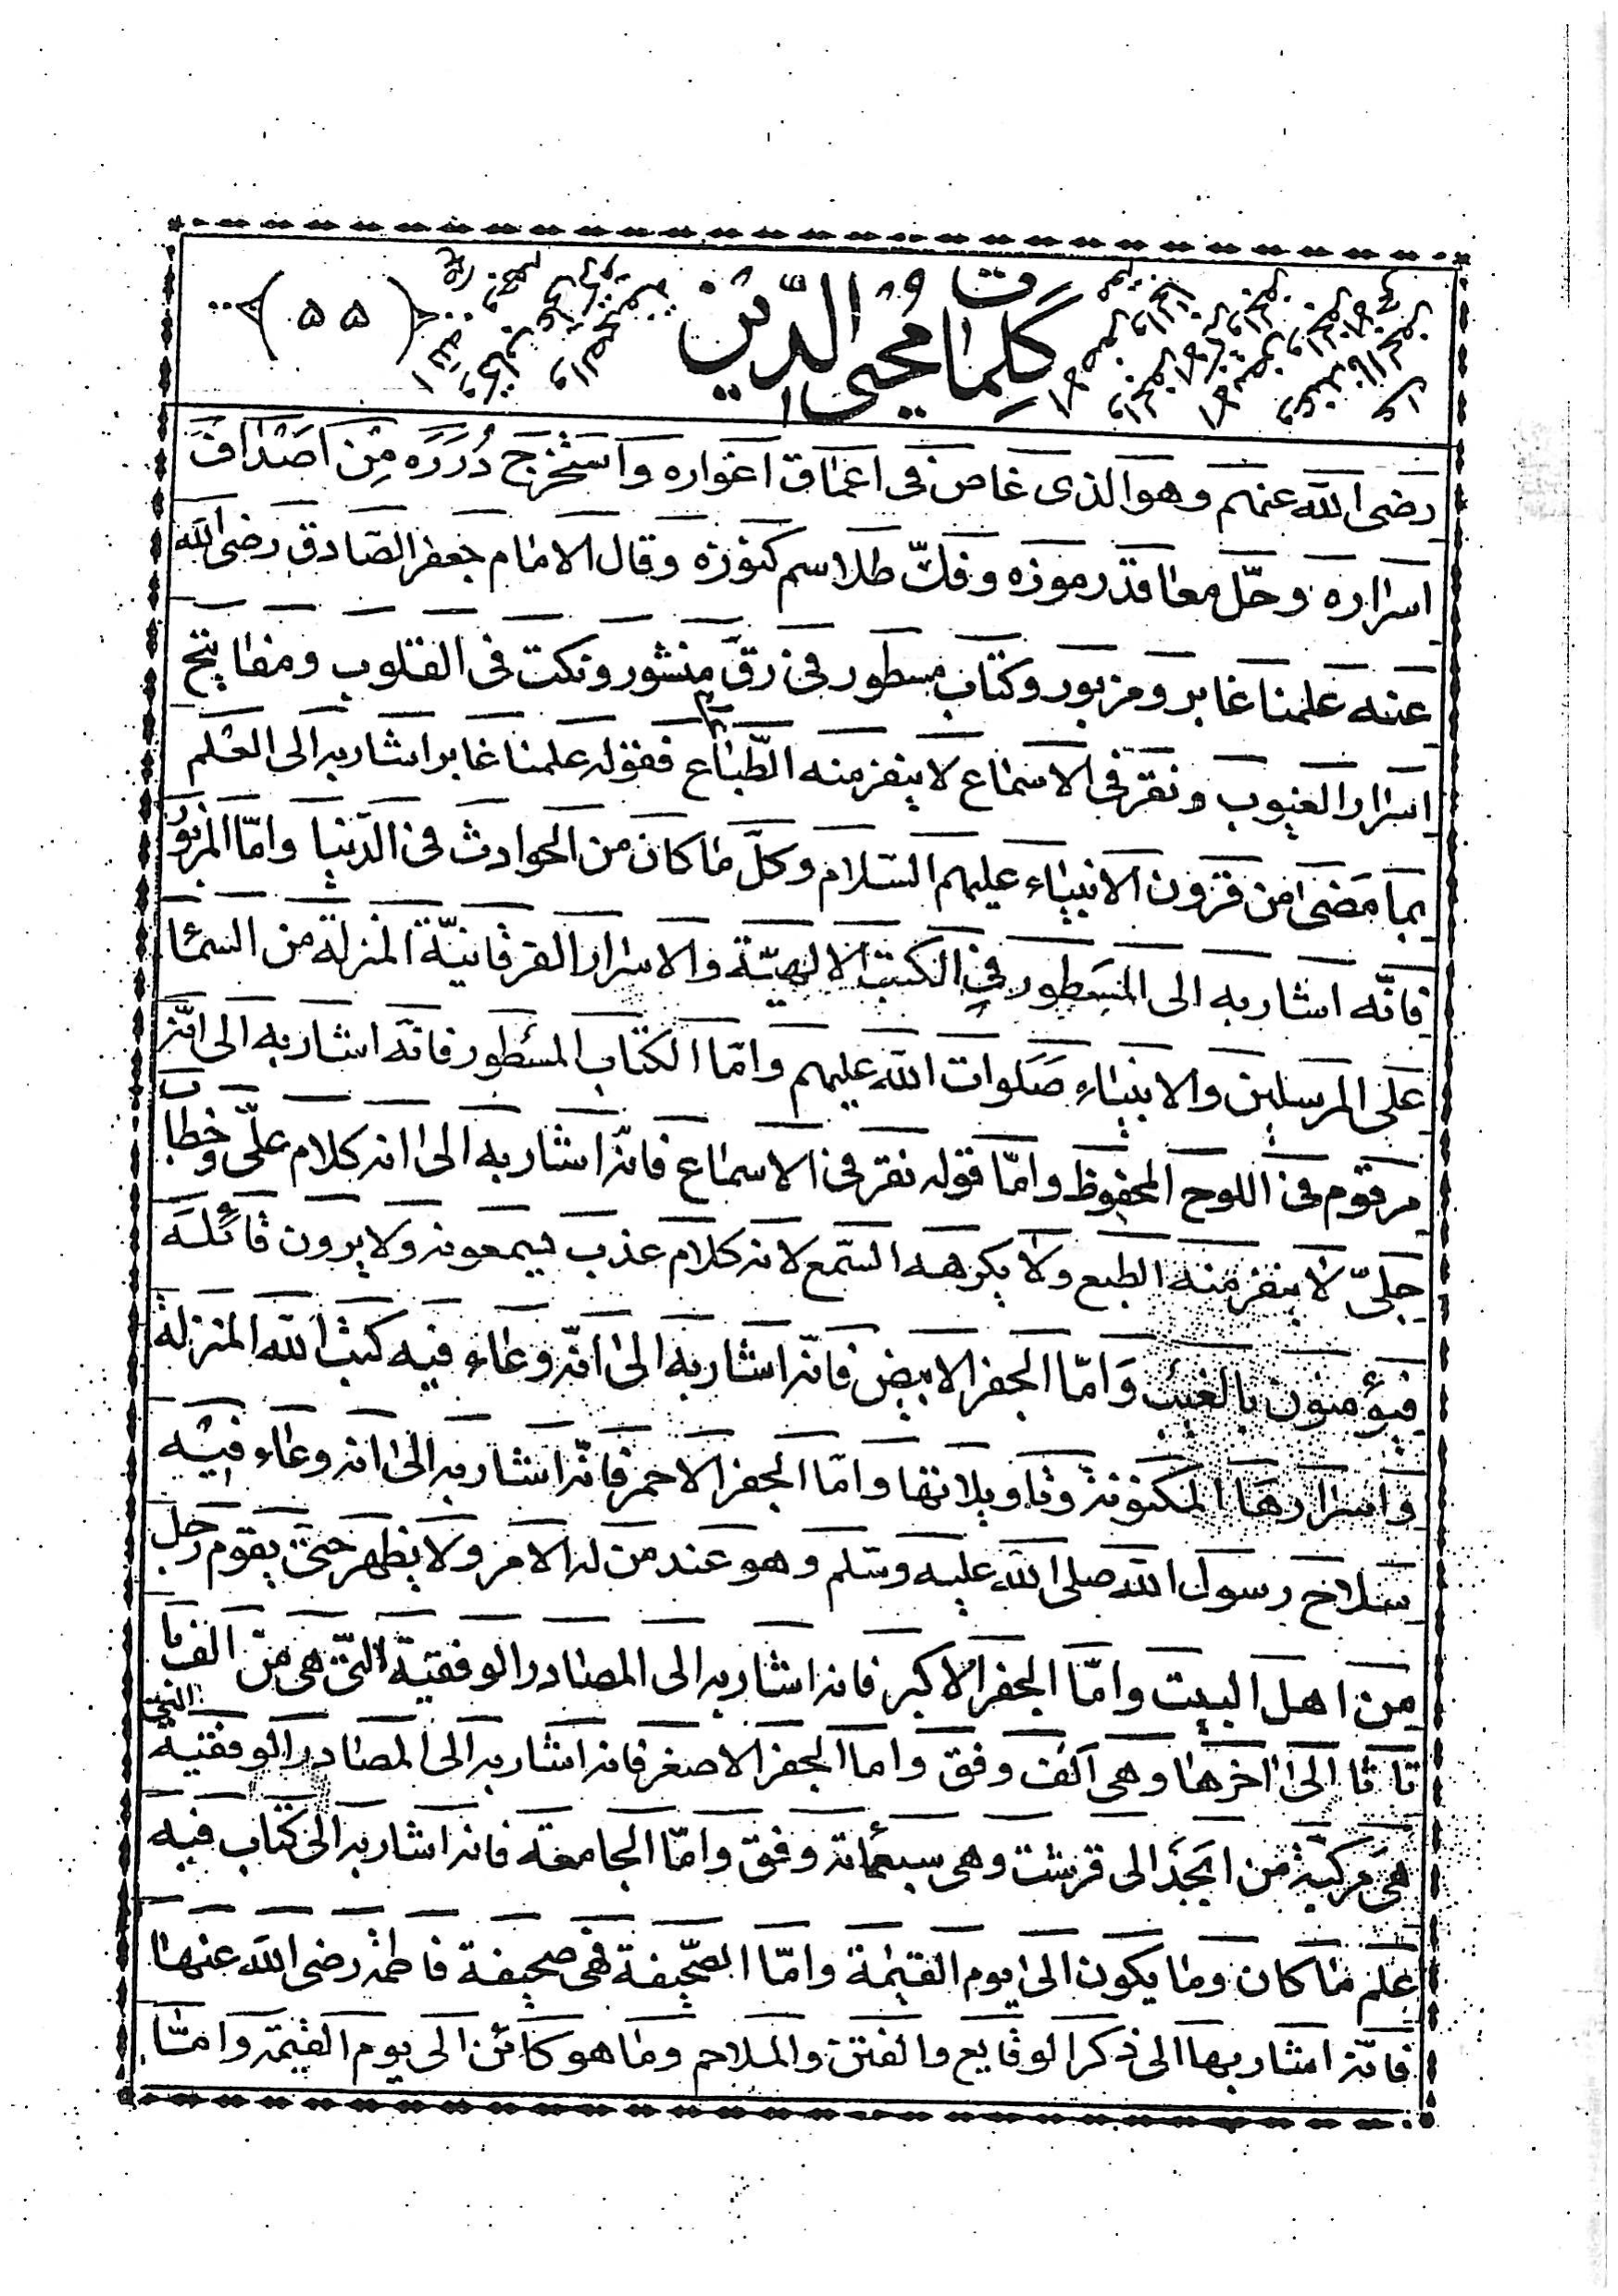 كلمات محيى الدين
(۵۵)
رضى الله عنهم وهو الذى غاص فى اعماق اغواره واستخرج درره من اصداف
اسراره وحلّ معاقد رموزه وفكّ طلاسم كنوزه وقال الامام جعفر الصادق رضى الله
عنه علمنا غابر ومزبور وكتاب مسطور فى رقّ منشور ونكت فى القلوب ومفاتيح
اسرار الغيوب ونقر فى الاسماع لا ينفر منه الطّباع فقوله علمنا غابر اشار به الى العلم
بما مضى من قرون الانبياء عليهم السّلام وكلّ ما كان من الحوادث فى الدّنيا وامّا المزبور
فانّه اشار به الى المسطور فى الكتب الالهيّة والاسرار الفرقانيّة المنزلة من السماء
على المرسلين والانبياء صلوات الله عليهم وامّا الكتاب المسطور فانّه اشار به الى انّه
مرقوم فى اللوح المحفوظ وامّا قوله نقر فى الاسماع فانّه اشار به الى انه كلام علىّ وخطاب
جلىّ لا ينفر منه الطبع ولا يكرهه السّمع لانه كلام عذب يسمعونه ولا يرون قائله
فيؤمنون بالغيب وامّا الجفر الابيض فانّه اشار به الى انّه وعاء فيه كتب الله المنزلة
واسرارها المكنونة وتاويلاتها وامّا الجفر الاحمر فانّه اشار به الى انه وعاء فيه
سلاح رسول الله صلى الله عليه وسّلم وهو عند من له الامر ولا يظهر حتى يقوم رجل
من اهل البيت وامّا الجفر الاكبر فانه اشار به الى المصادر الوفقية التى هى من الف با
تا ثا الى اخرها وهى الف وفق واما الجفر الاصغر فانه اشار به الى المصادر الوفقية التى
هى مركبة من ابجد الى قرشت وهى سبعمائة وفق وامّا الجامعة فانه اشار به الى كتاب فيه
علم ما كان وما يكون الى يوم القيمة وامّا الصّحيفة فهى صحيفة فاطمة رضى الله عنها
فانّه اشار بها الى ذكر الوقايع والفتن والملاحم وما هو كائن الى يوم القيمة وامّا